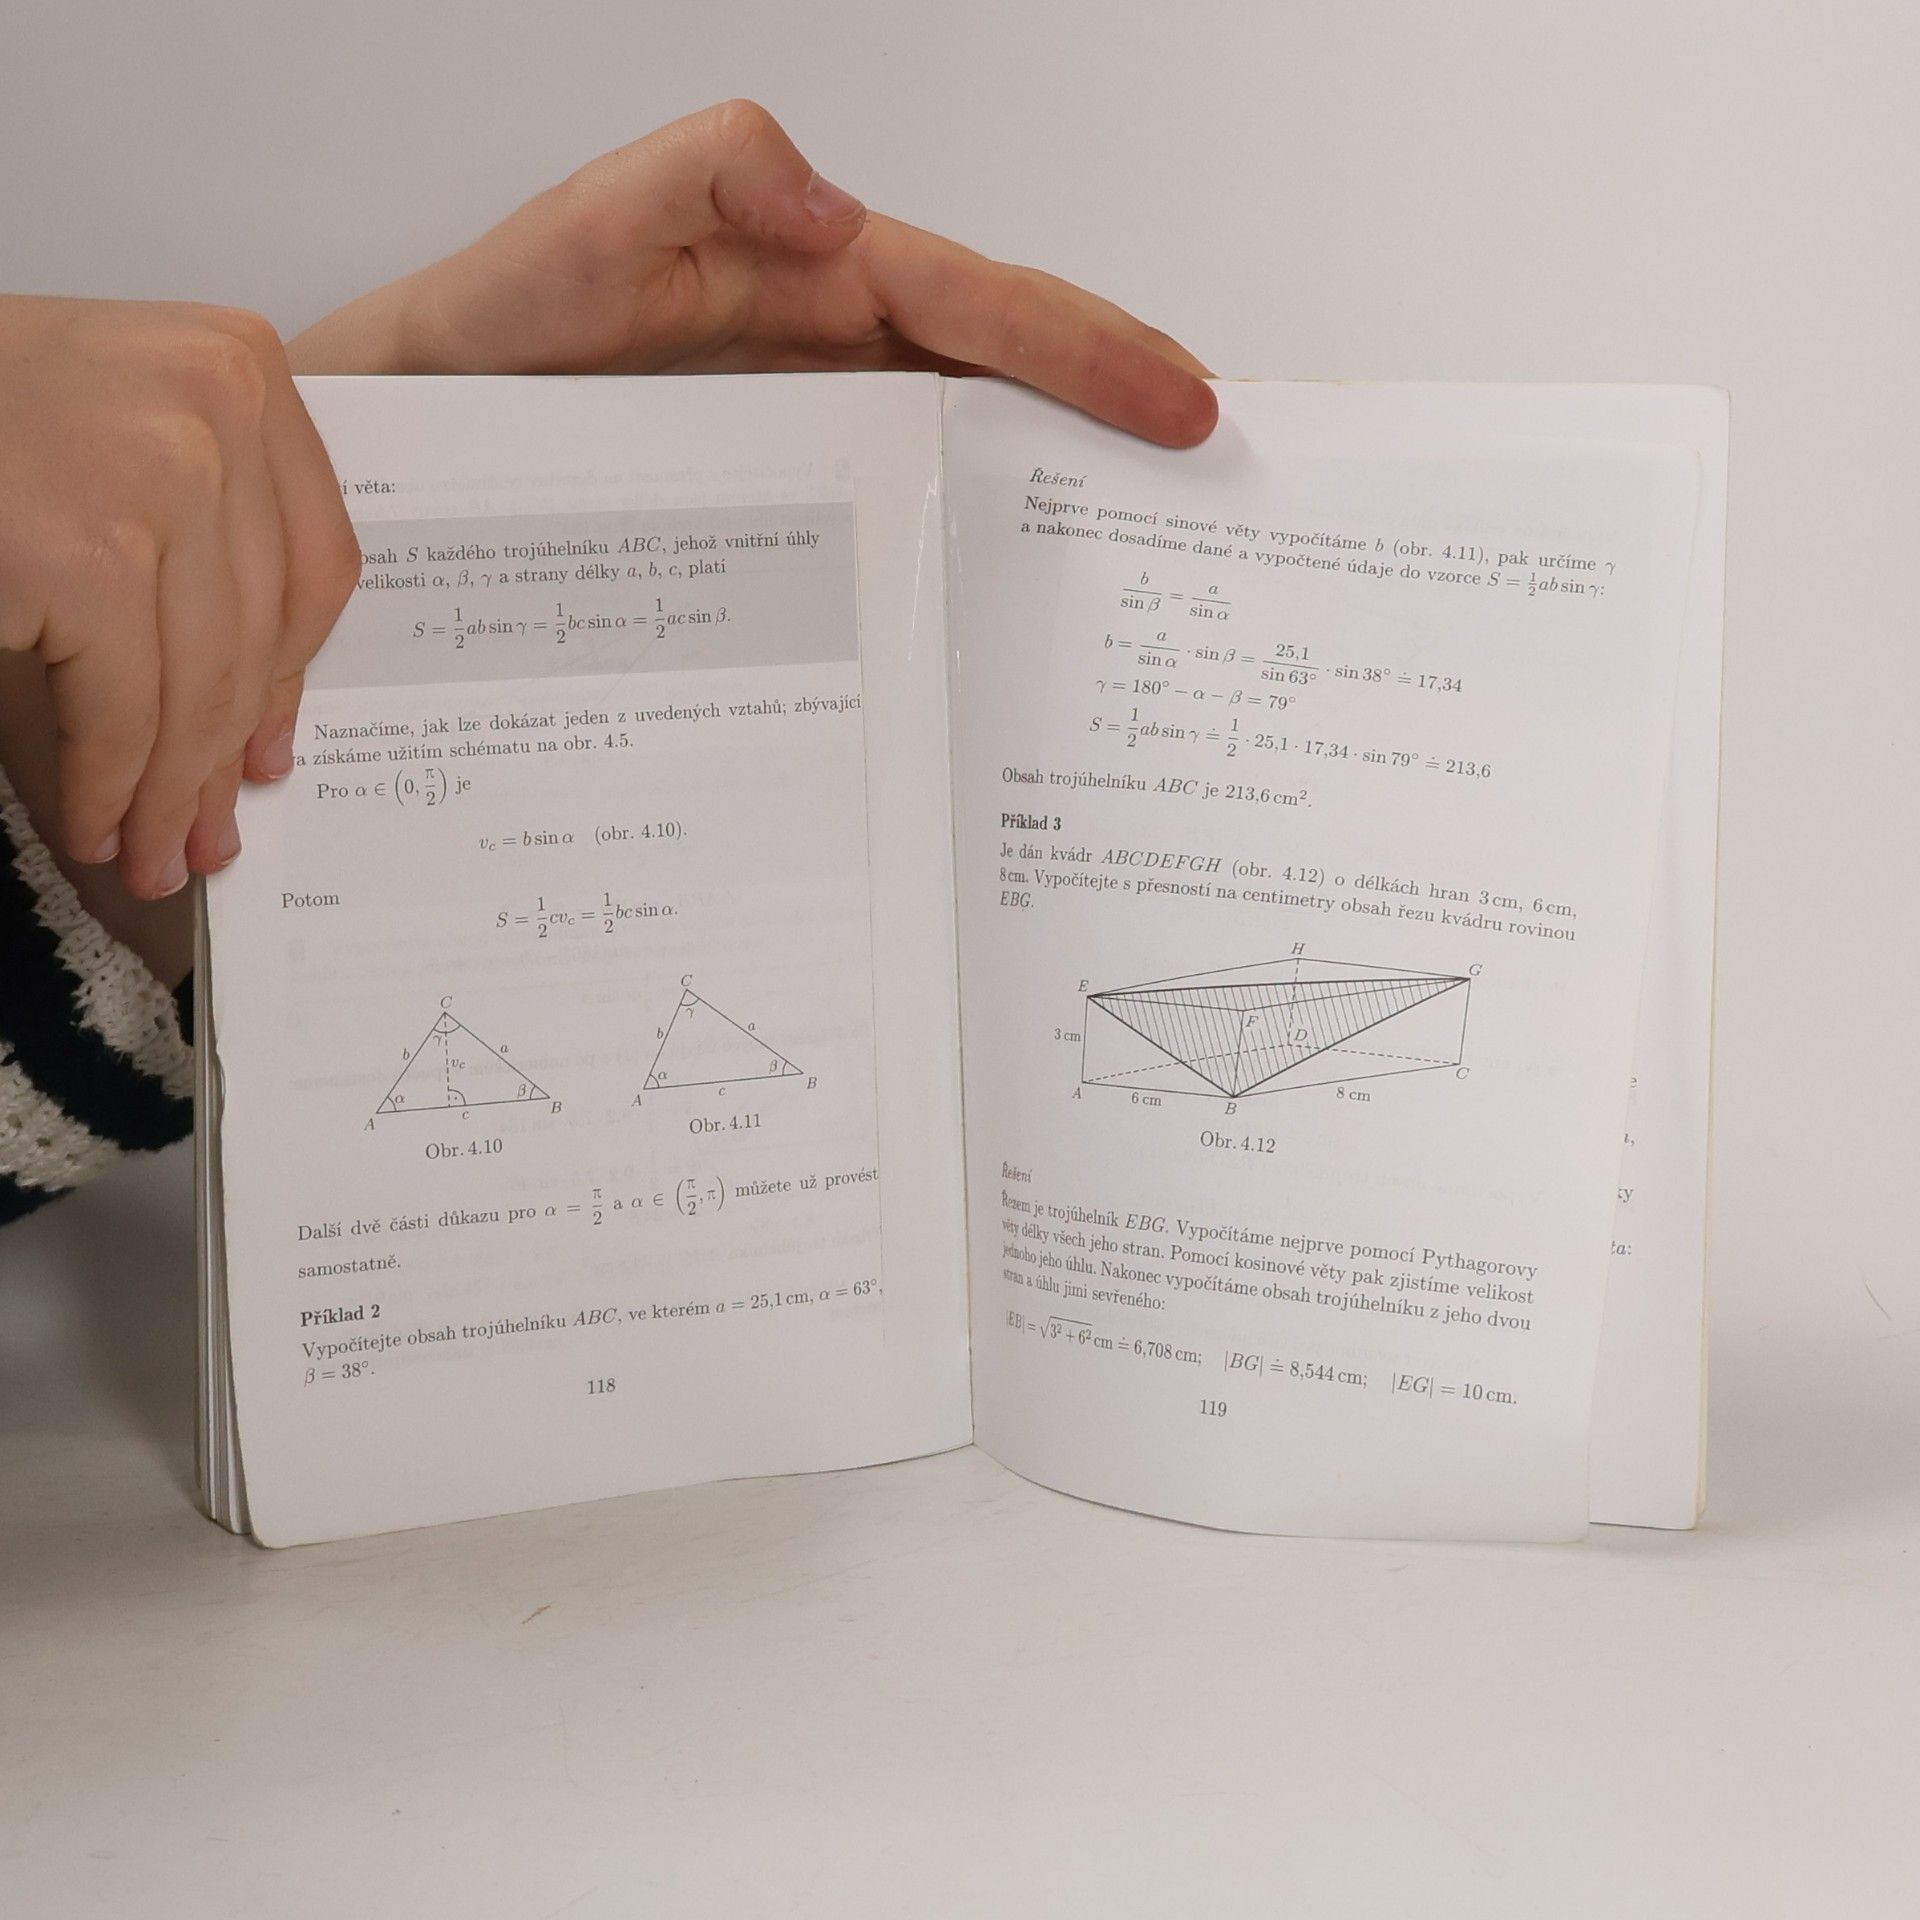 í věta:
obsah S každého trojúhelníku ABC, jehož vnitřní úhly
velikosti α, β, γ a strany délky a, b, c, platí
S = 1/2 ab sin γ = 1/2 bc sin α = 1/2 ac sin β.
Naznačíme, jak lze dokázat jeden z uvedených vztahů; zbývající
a získáme užitím schématu na obr. 4.5.
Pro α ∈ (0, π/2) je
v_c = b sin α (obr. 4.10).
Potom
S = 1/2 cv_c = 1/2 bc sin α.
C
γ
b
a
v_c
α
β
A
c
B
Obr. 4.10
C
γ
b
a
α
β
A
c
B
Obr. 4.11
Další dvě části důkazu pro α = π/2 a α ∈ (π/2, π) můžete už provést
samostatně.
Příklad 2
Vypočítejte obsah trojúhelníku ABC, ve kterém a = 25,1 cm, α = 63°,
β = 38°.
118
Řešení
Nejprve pomocí sinové věty vypočítáme b (obr. 4.11), pak určíme γ
a nakonec dosadíme dané a vypočtené údaje do vzorce S = 1/2 ab sin γ:
b/sin β = a/sin α
b = a/sin α · sin β = 25,1/sin 63° · sin 38° ≐ 17,34
γ = 180° − α − β = 79°
S = 1/2 ab sin γ ≐ 1/2 · 25,1 · 17,34 · sin 79° ≐ 213,6
Obsah trojúhelníku ABC je 213,6 cm².
Příklad 3
Je dán kvádr ABCDEFGH (obr. 4.12) o délkách hran 3 cm, 6 cm,
8 cm. Vypočítejte s přesností na centimetry obsah řezu kvádru rovinou
EBG.
H
G
E
F
D
3 cm
C
A
6 cm
B
8 cm
Obr. 4.12
Řešení
Řezem je trojúhelník EBG. Vypočítáme nejprve pomocí Pythagorovy
věty délky všech jeho stran. Pomocí kosinové věty pak zjistíme velikost
jednoho jeho úhlu. Nakonec vypočítáme obsah trojúhelníku z jeho dvou
stran a úhlu jimi sevřeného:
|EB| = √(3² + 6²) cm ≐ 6,708 cm; |BG| ≐ 8,544 cm; |EG| = 10 cm.
119
ky
ta: